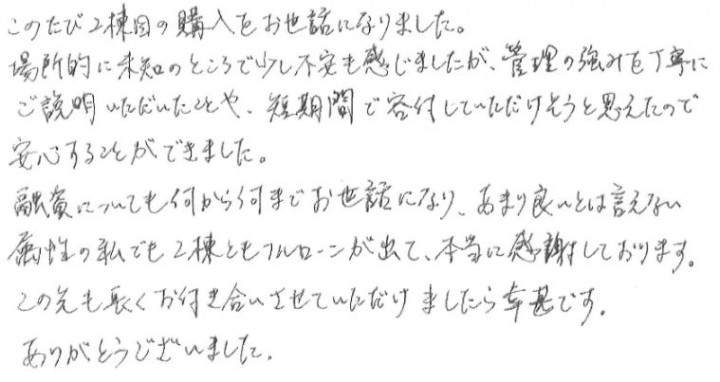 このたび2棟目の購入をお世話になりました。
場所的に未知のところで少し不安も感じましたが、管理の強みを丁寧に
ご説明いただいたことや、短期間で客付していただけそうと思えたので
安心することができました。
融資についても何から何までお世話になり、あまり良いとは言えない
属性の私でも2棟ともフルローンが出て、本当に感謝しております。
この先も長くお付き合いさせていただけましたら幸甚です。
ありがとうございました。